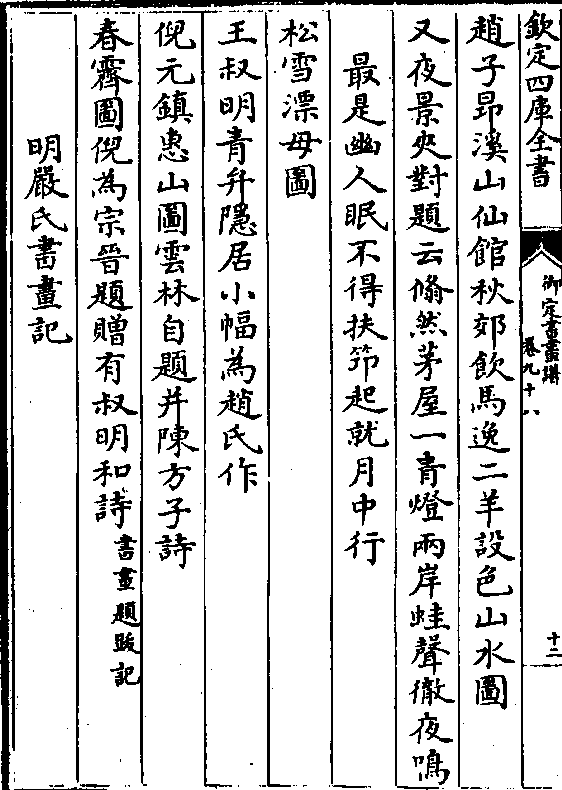 欽定四庫全書
御定書畫譜
卷九十八
十二
趙子昻溪山仙館秋郊飲馬逸二羊設色山水圖
又夜景夾對題云翛然茅屋一青燈兩岸蛙聲徹夜鳴
最是幽人眠不得扶笻起就月中行
松雪漂母圖
王叔明青弁隱居小幅為趙氏作
倪元鎮惠山圖雲林自題并陳方子詩
春霽圖倪為宗晉題贈有叔明和詩書畫題跋記
明嚴氏書畫記